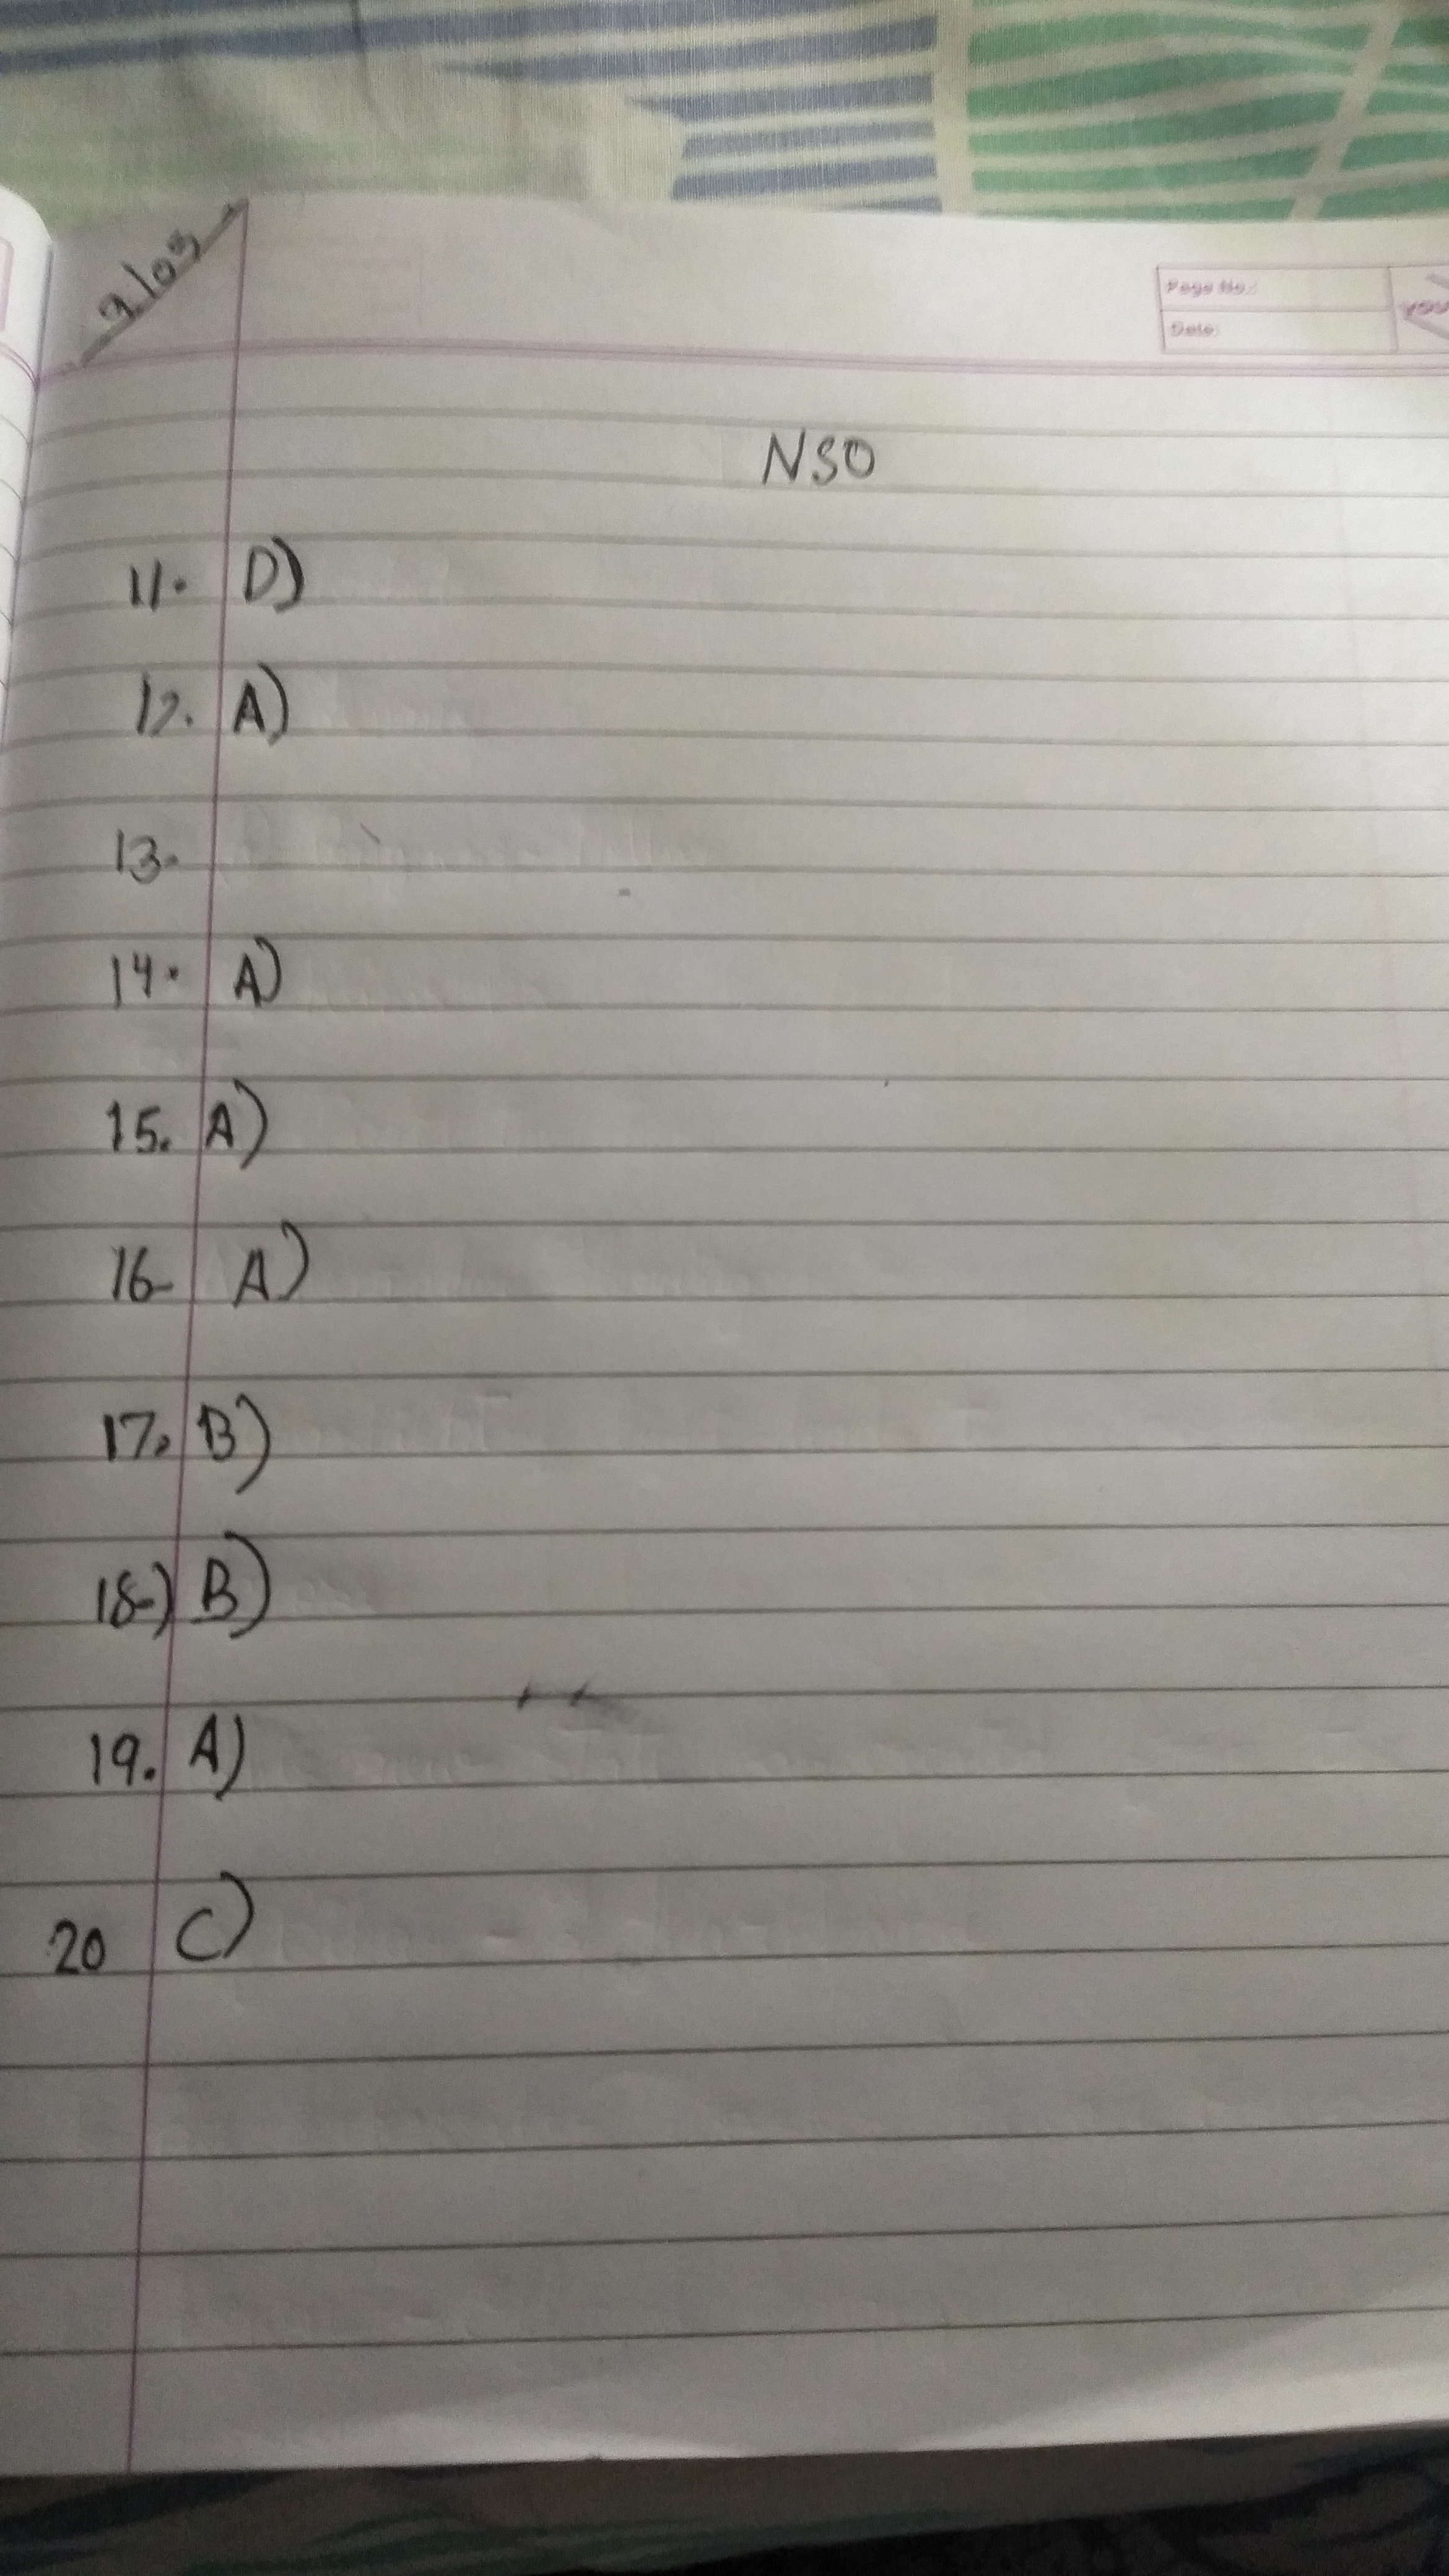 Page No.:
Date:
NSO
11. D)
12. A)
13.
14. A)
15. A)
16- A)
17. B)
18-) B)
19. A)
20 C)